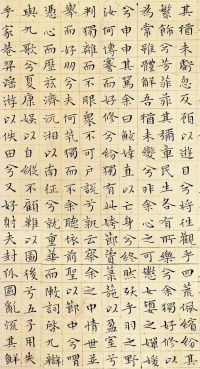 其猶未虧忽反顧以遊目兮將往觀乎四荒佩繽紛其
繁飾兮芳菲菲其彌章民生各有所樂兮余獨好修以
為常雖體解吾猶未變兮豈余心之可懲女嬃之嬋媛
兮申申其詈余曰鮌婞直以亡身兮終然殀乎羽之野
汝何博謇而好修兮紛獨有此姱節薋菉葹以盈室兮
判獨離而不服眾不可戶說兮孰云察余之中情世並
舉而好朋兮夫何煢獨而不予聽依前聖以節中兮喟
憑心而歷茲濟沅湘以南征兮就重華而敶詞啟九辯
與九歌兮夏康娛以自縱不顧難以圖後兮五子用失
乎家巷羿淫遊以佚田兮又好射夫封狐固亂流其鮮